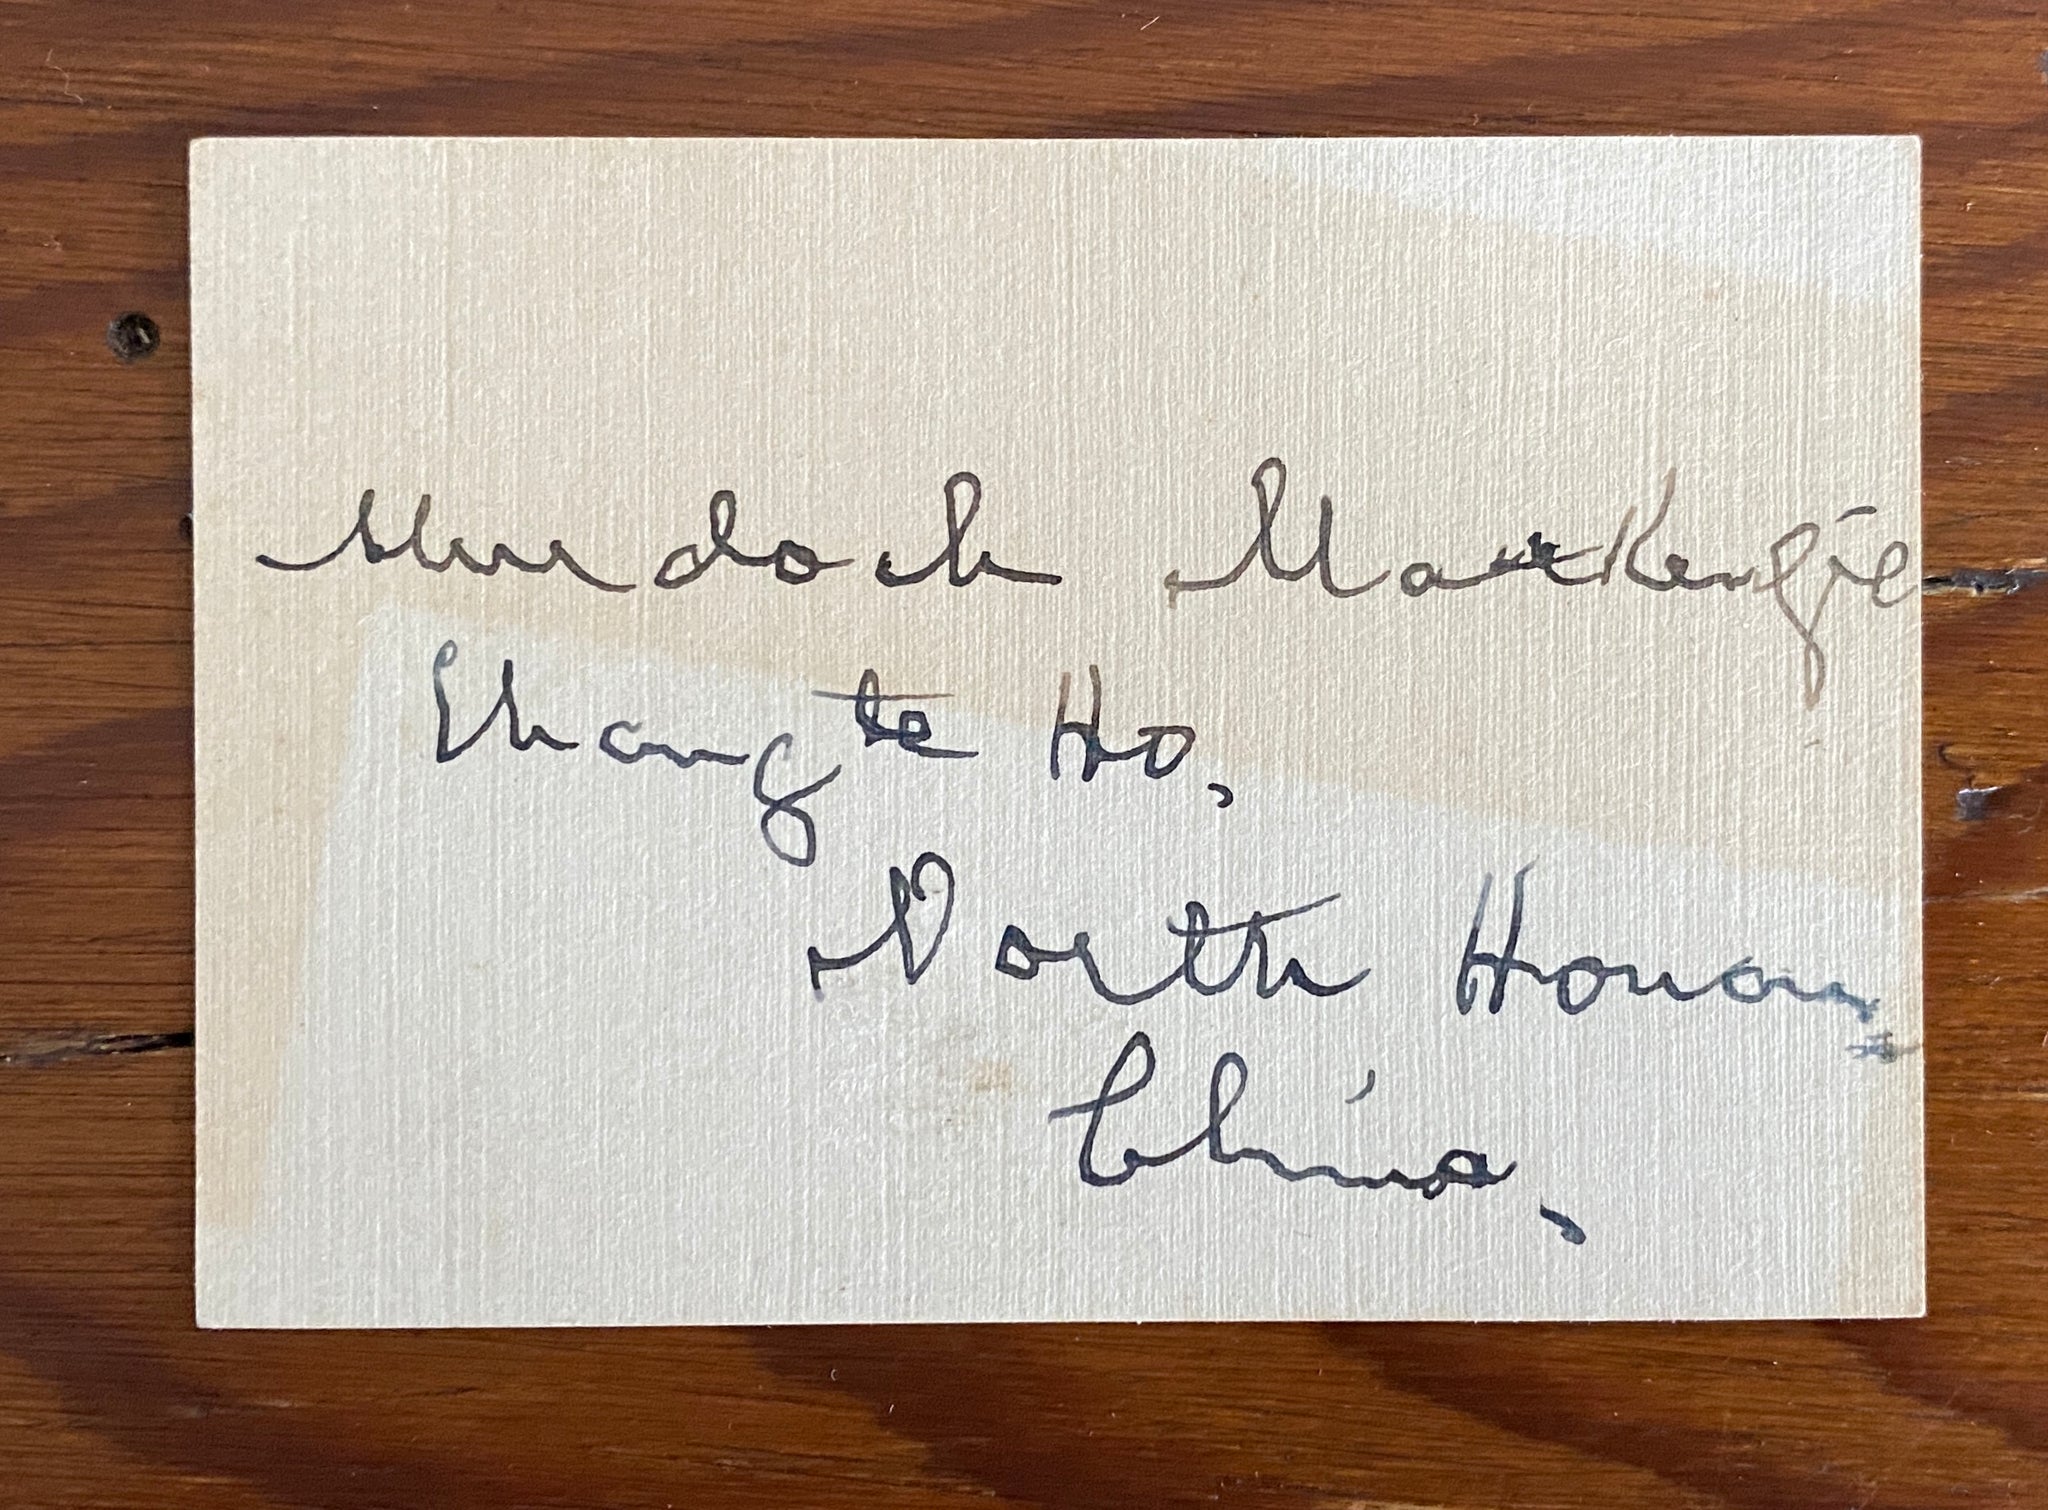 Murdoch MacKenzie
Changte Ho,
North Honan,
China,